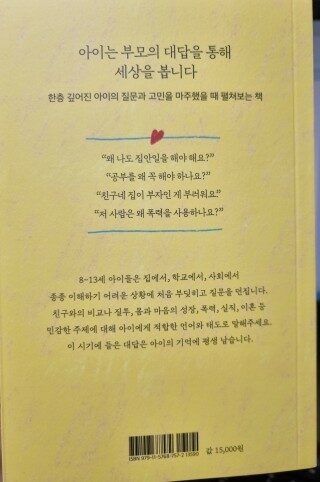 아이는 부모의 대답을 통해
세상을 봅니다
한층 깊어진 아이의 질문과 고민을 마주했을 때 펼쳐보는 책
“왜 나도 집안일을 해야 해요?”
“공부를 왜 꼭 해야 하나요?”
“친구네 집이 부자인 게 부러워요.”
“저 사람은 왜 폭력을 사용하나요?”
8~13세 아이들은 집에서, 학교에서, 사회에서
종종 이해하기 어려운 상황에 처음 부딪히고 질문을 던집니다.
친구와의 비교나 질투, 몸과 마음의 성장, 폭력, 실직, 이혼 등
민감한 주제에 대해 아이에게 적합한 언어와 태도로 말해주세요.
이 시기에 들은 대답은 아이의 기억에 평생 남습니다.
ISBN 979-11-5768-757-2 13590
값 15,000원